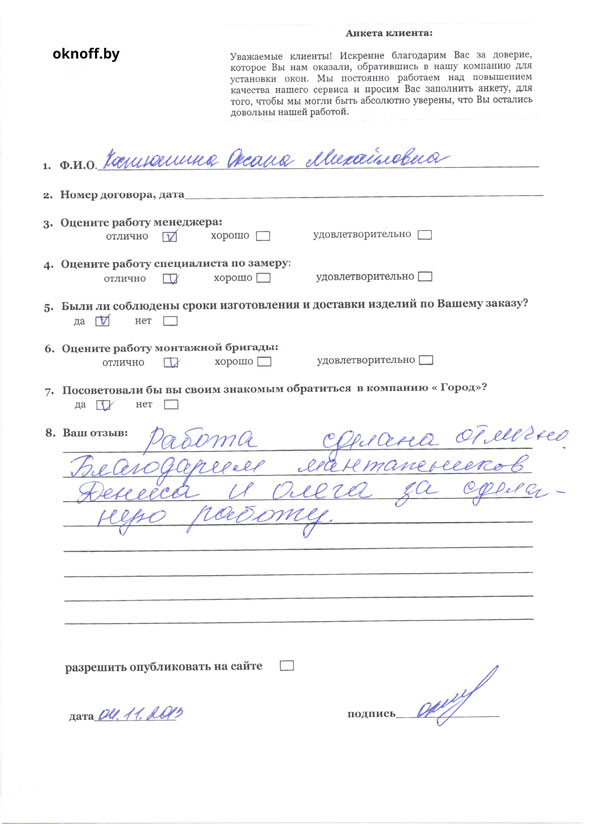 oknoff.by
Анкета клиента:
Уважаемые клиенты! Искренне благодарим Вас за доверие,
которое Вы нам оказали, обратившись в нашу компанию для
установки окон. Мы постоянно работаем над повышением
качества нашего сервиса и просим Вас заполнить анкету, для
того, чтобы мы могли быть абсолютно уверены, что Вы остались
довольны нашей работой.
1. Ф.И.О. Оксана Михайловна
2. Номер договора, дата
3. Оцените работу менеджера:
отлично V хорошо удовлетворительно
4. Оцените работу специалиста по замеру:
отлично V хорошо удовлетворительно
5. Были ли соблюдены сроки изготовления и доставки изделий по Вашему заказу?
да V нет
6. Оцените работу монтажной бригады:
отлично V хорошо удовлетворительно
7. Посоветовали бы вы своим знакомым обратиться в компанию « Город»?
да V нет
8. Ваш отзыв: Работа сделана отлично.
Благодарим мантажников
Дениса и Олега за сдела-
ную работу.
разрешить опубликовать на сайте
дата 04.11.2013 подпись